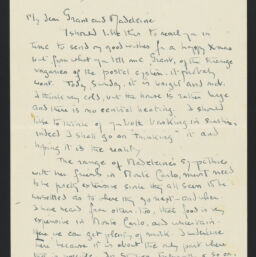 My dear Grant and Madeleine
I should like this to reach you in
time to send my good wishes for a happy Xmas
but from what you tell me Grant, of the strange
vagaries of the postal system it probably
wont. Today, Sunday, it is bright and not
I think very cold, but the house is rather large
and there is no central heating. I should
like to think of you both basking in sunshine
indeed I shall go on thinking it and
hoping it is the reality.
The range of Madeleine's sympathies
with her friends in Monte Carlo, must need
to be pretty extensive since they all seem to be
to where they go next - and when
I have heard from others too, that food is very
expensive in Monte Carlo, and uncertain -
you we can get plenty of milk I underline
here because it is about the only part where